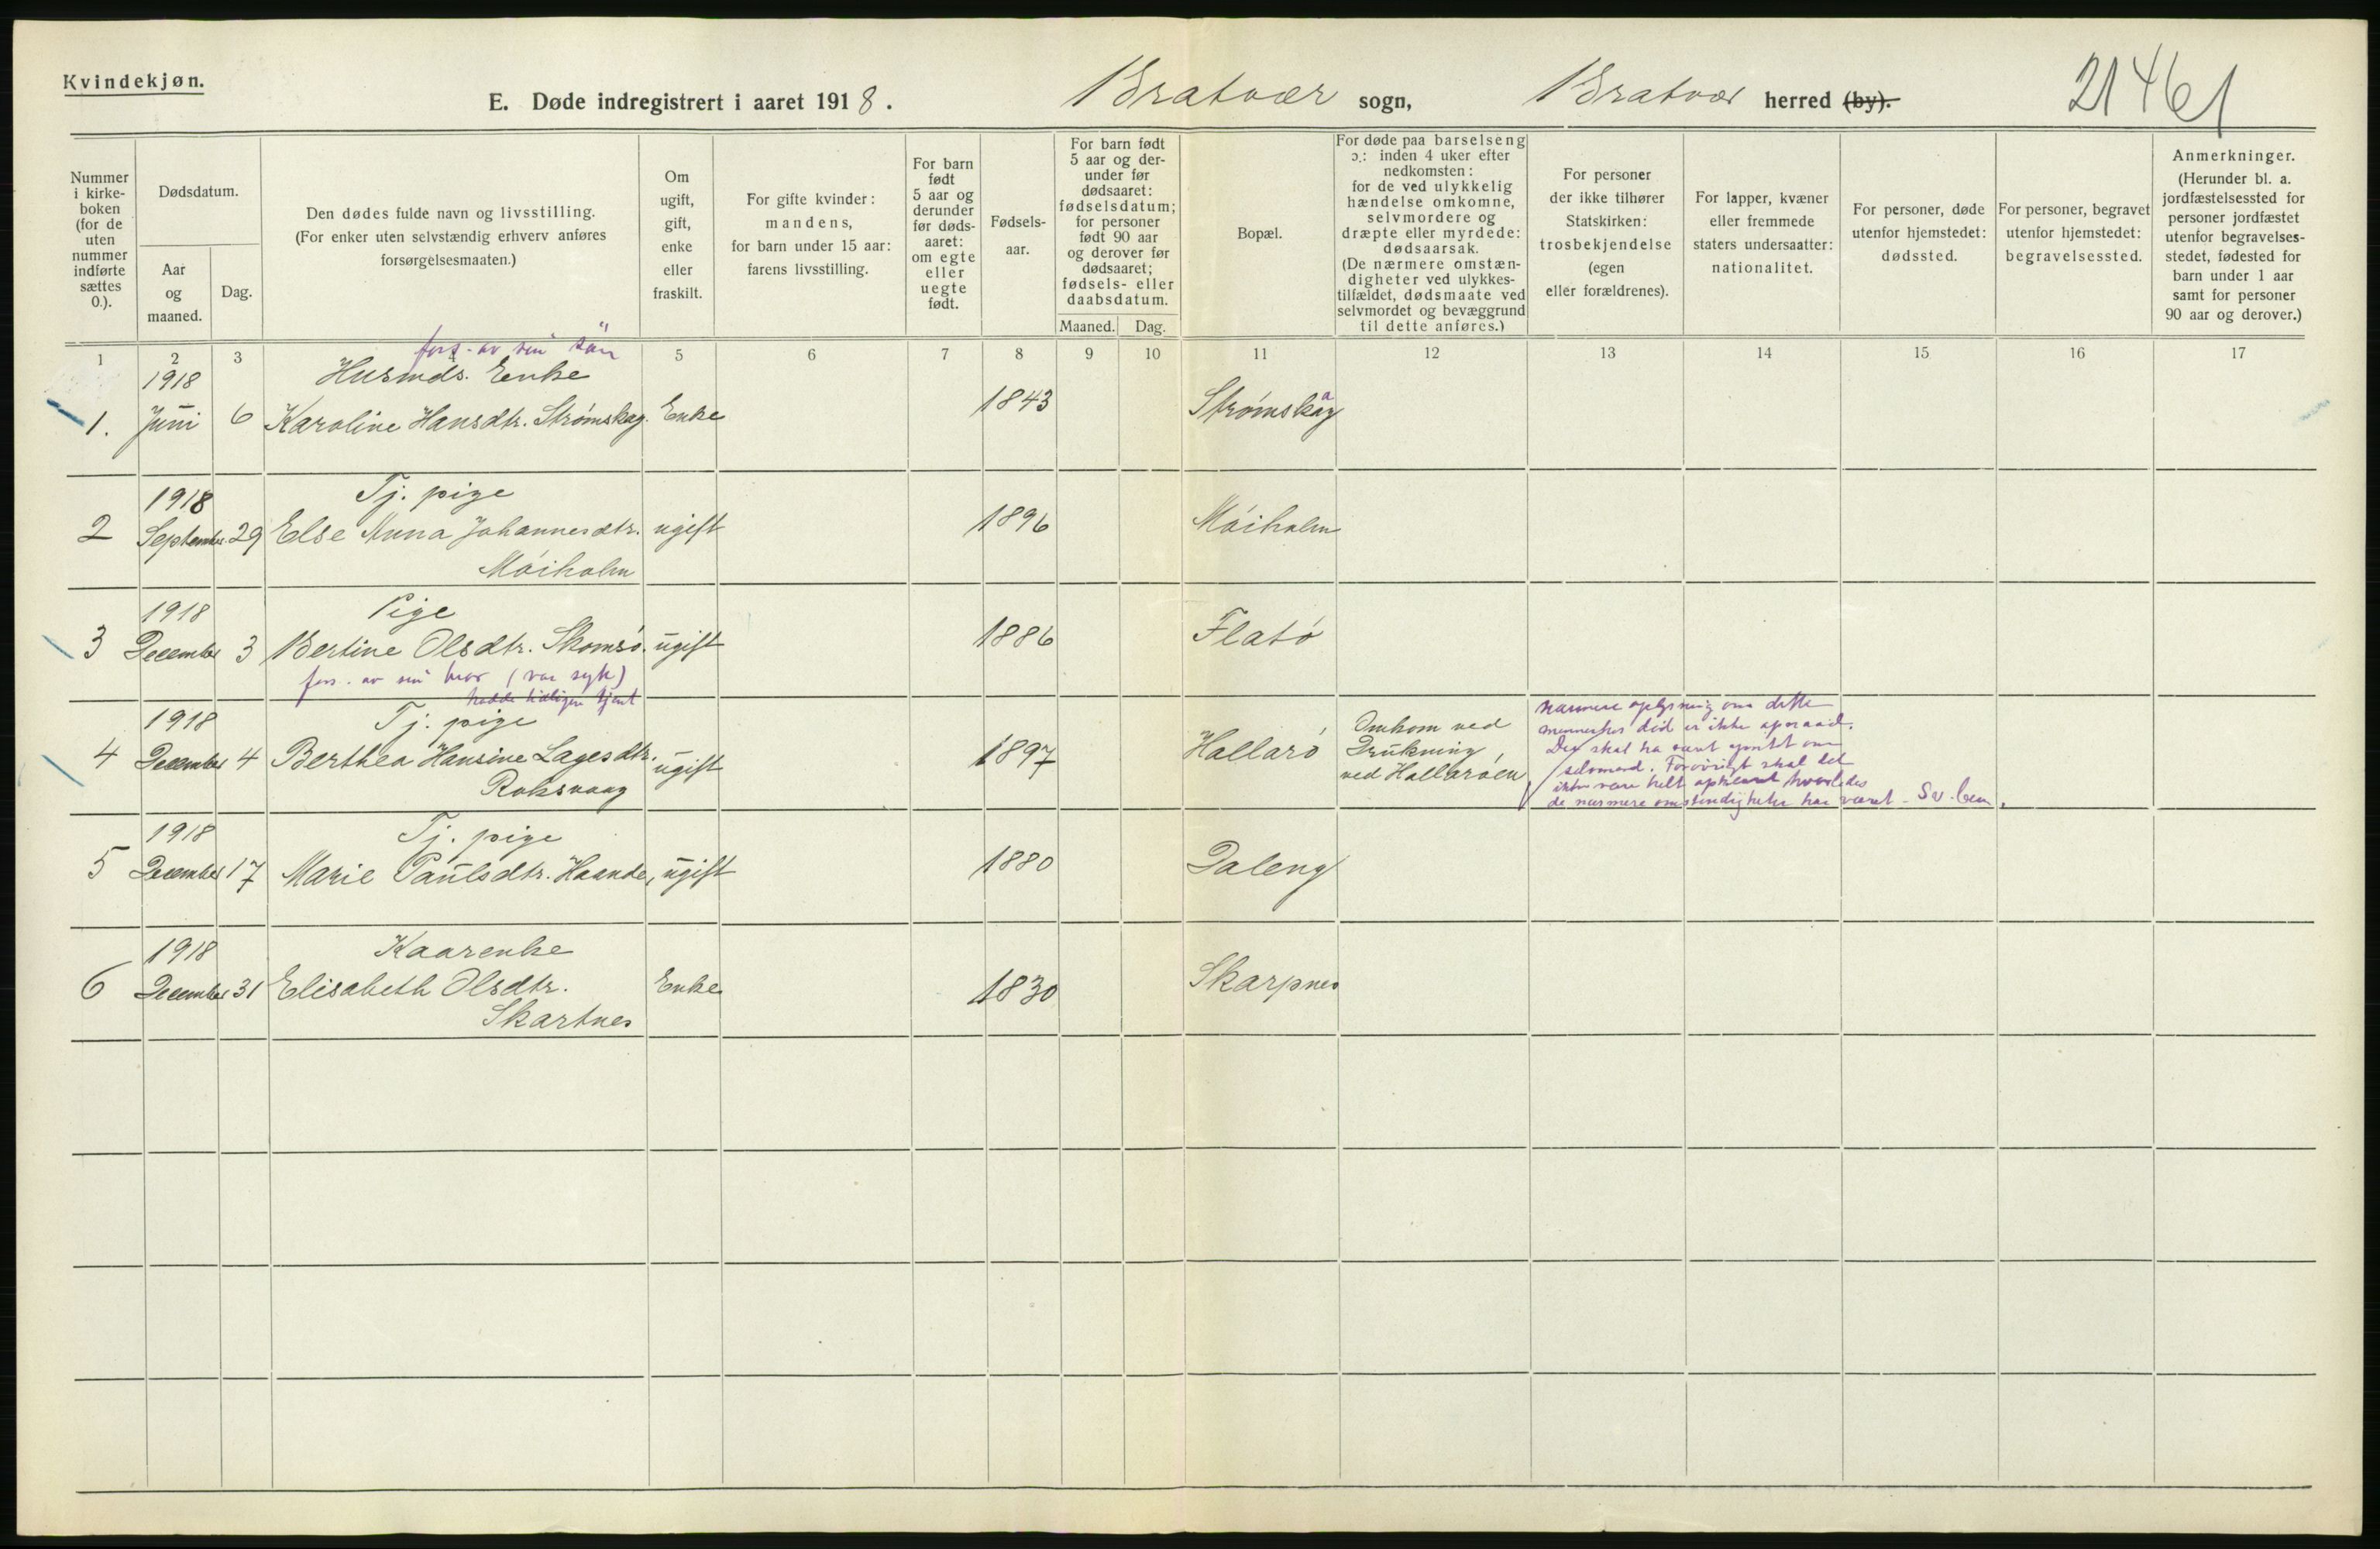 Kvindekjøn.
E. Døde indregistrert i aaret 1918. Bratvær sogn, Bratvær herred (by). 21461
Nummer
i kirke-
boken
(for de
uten
nummer
indførte
sættes
0.).
Dødsdatum.
Aar
og
maaned.
Dag.
Den dødes fulde navn og livsstilling.
(For enker uten selvstændig erhverv anføres
forsørgelsesmaaten.)
Om
ugift,
gift,
enke
eller
fraskilt.
For gifte kvinder:
mandens,
for barn under 15 aar:
farens livsstilling.
For barn
født
5 aar og
derunder
før døds-
aaret:
om egte
eller
uegte
født.
Fødsels-
aar.
For barn født
5 aar og der-
under før
dødsaaret:
fødselsdatum;
for personer
født 90 aar
og derover før
dødsaaret;
fødsels- eller
daabsdatum.
Maaned. Dag.
Bopæl.
For døde paa barselseng
ɔ: inden 4 uker efter
nedkomsten:
for de ved ulykkelig
hændelse omkomne,
selvmordere og
dræpte eller myrdede:
dødsaarsak.
(De nærmere omstæn-
digheter ved ulykkes-
tilfældet, dødsmaate ved
selvmordet og bevæggrund
til dette anføres.)
For personer
der ikke tilhører
Statskirken:
trosbekjendelse
(egen
eller forældrenes).
For lapper, kvæner
eller fremmede
staters undersaatter:
nationalitet.
For personer, døde
utenfor hjemstedet:
dødssted.
For personer, begravet
utenfor hjemstedet:
begravelsessted.
Anmerkninger.
(Herunder bl. a.
jordfæstelsessted for
personer jordfæstet
utenfor begravelses-
stedet, fødested for
barn under 1 aar
samt for personer
90 aar og derover.)
1 2 3 4 5 6 7 8 9 10 11 12 13 14 15 16 17
fors. av sin søn
1918 Husmds. Enke
1. Juni 6 Karoline Hansdtr. Strømskag. Enke 1843 Strømskag
1918 Tj. pige
2 September 29 Else Anna Johannesdtr. ugift 1896 Møiholm
Møiholm
1918 Pige
3 December 3 Bertine Olsdtr. Skomsø. ugift 1886 Flatø
fors. av sin bror (var syk)
hadde tidligere tjent
1918 Tj. pige
4 December 4 Berthea Hansine Lagesdtr. ugift 1897 Hallarø
Roksvaag
Omkom ved
Drukning,
ved Hallarøen
nærmere oplysning om dette
menneskes död er ikke
Det skal ha været ymtet om
selvmord. Forøvrigt skal det
ikke være helt opklaret hvorledes
de nærmere omstendigheter har været - Sv. ben.
1918 Tj. pige
5 December 17 Marie Paulsdtr. Haande, ugift 1880 Daleng
1918 Kaarenke
6 December 31 Elisabeth Olsdtr. Enke 1830 Skarpnes
Skartnes